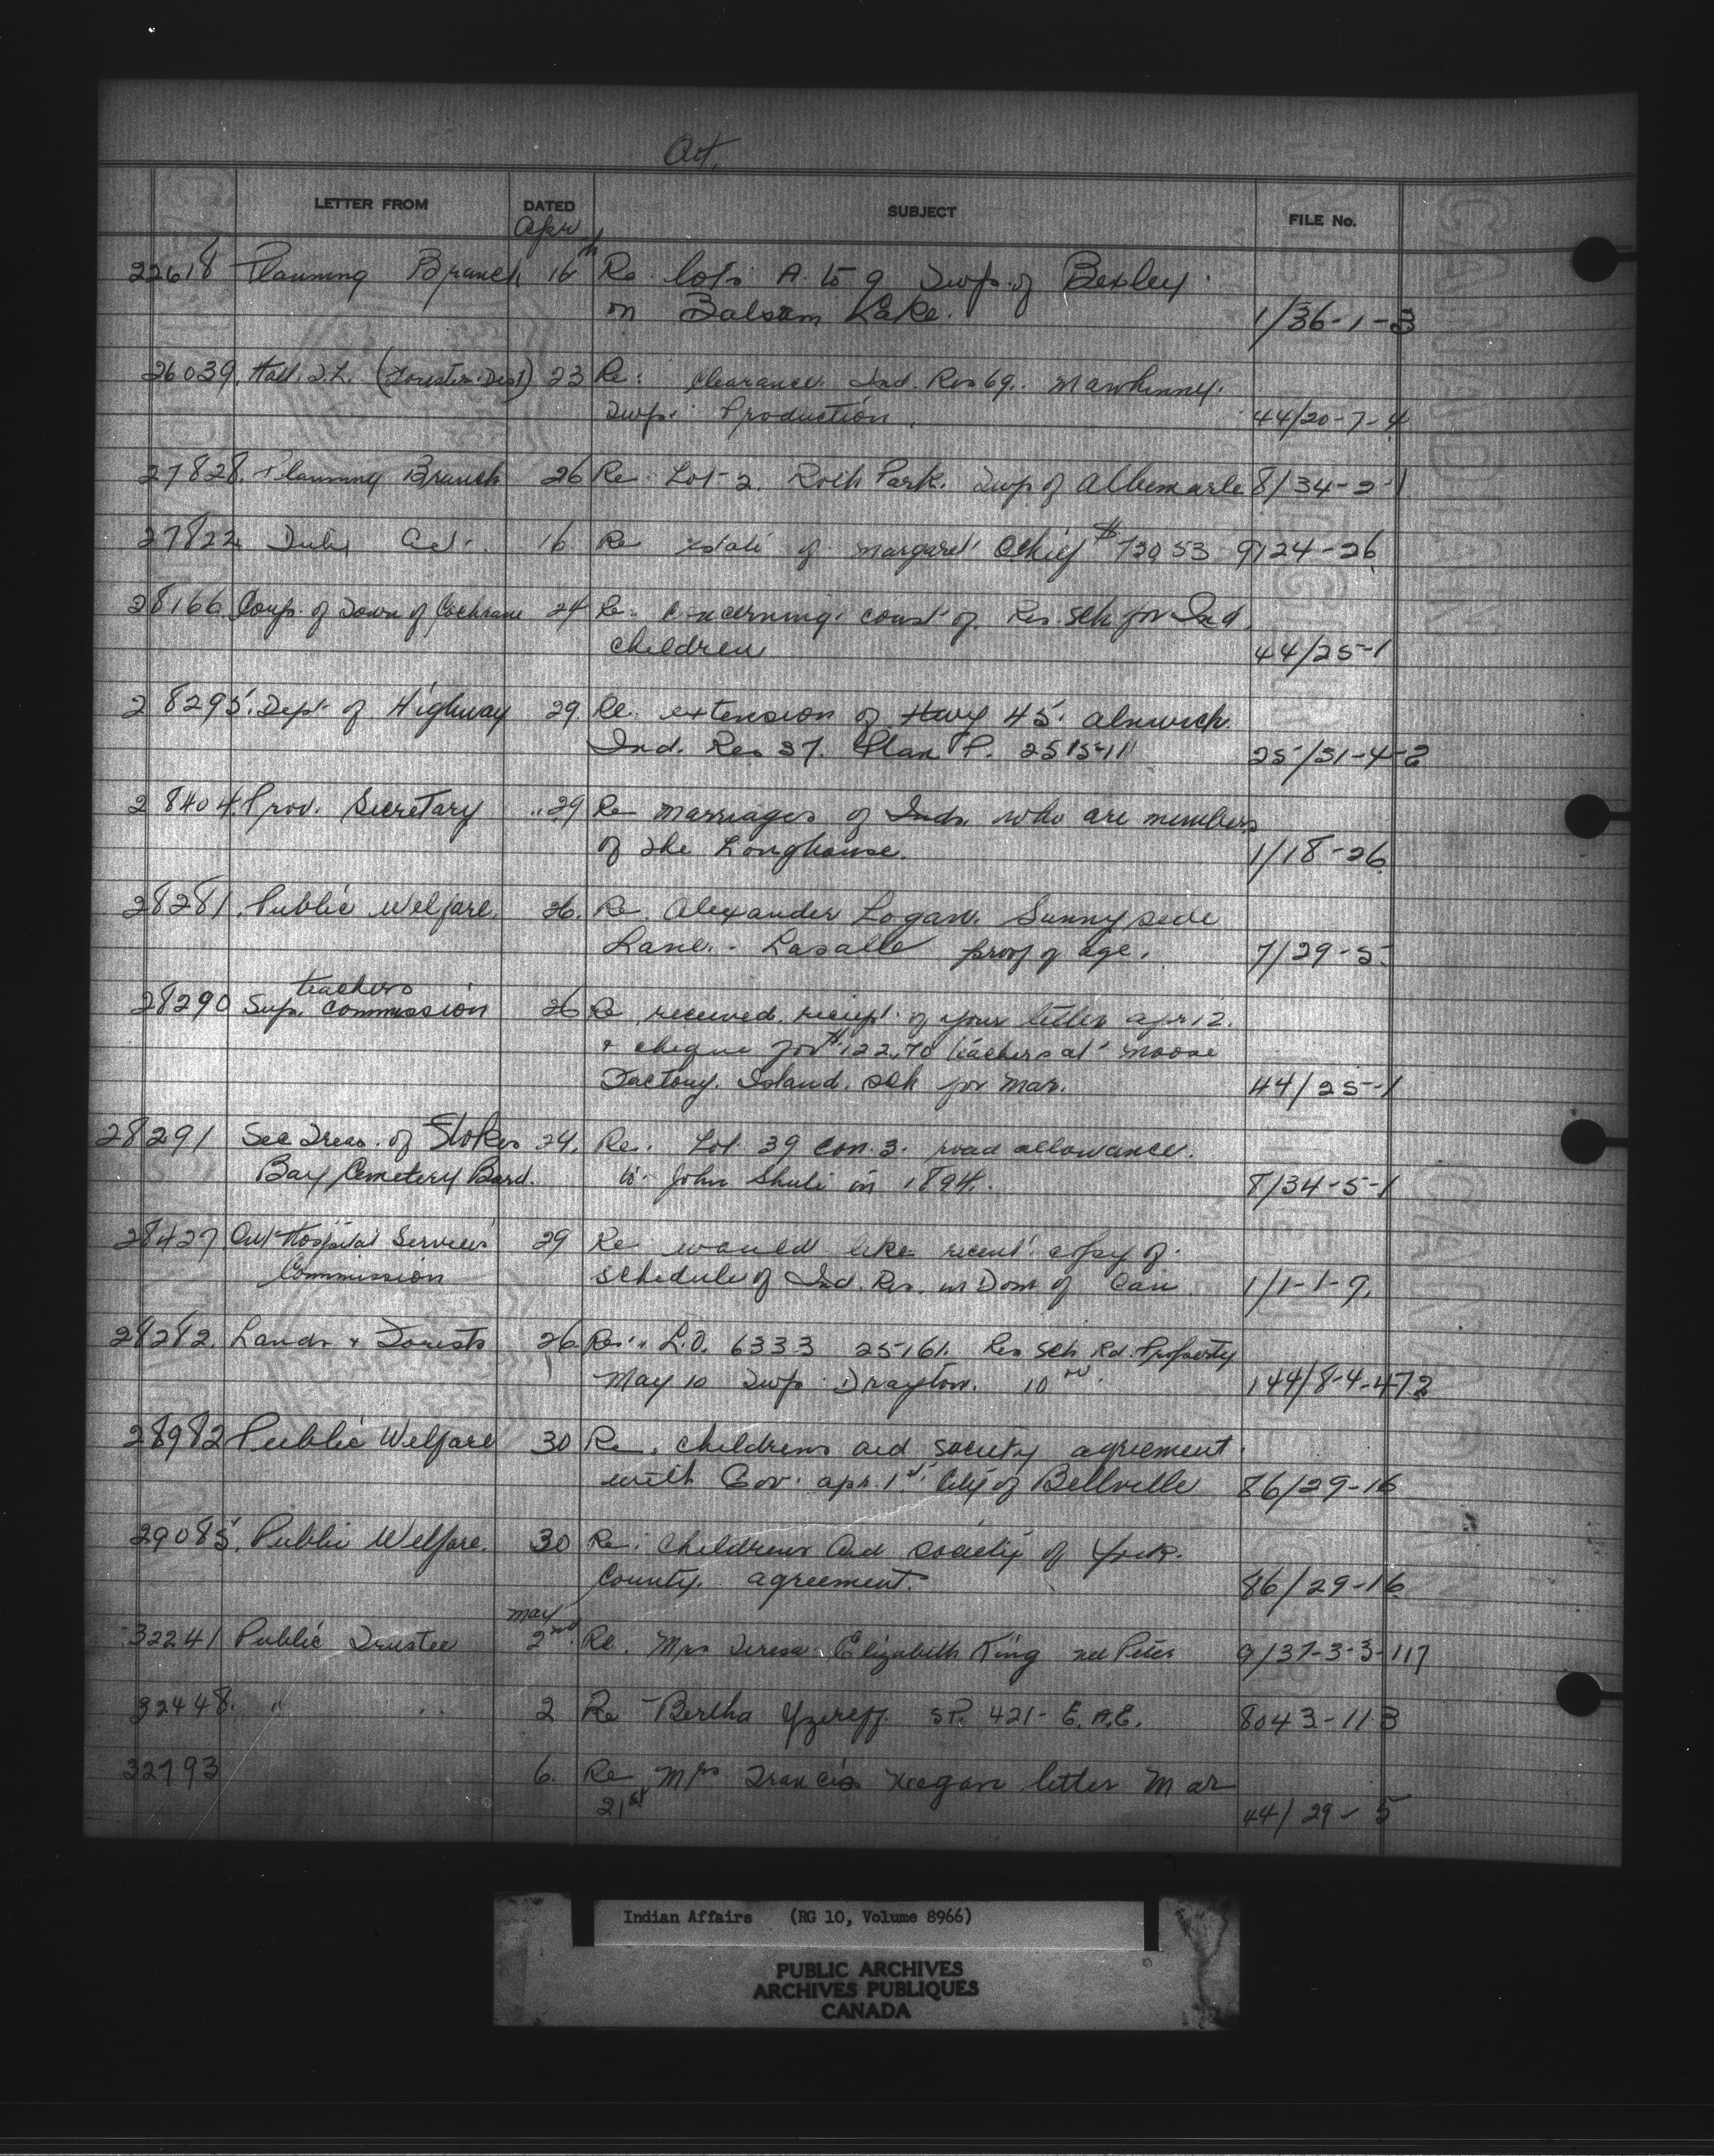 Ont.
LETTER FROM DATED SUBJECT FILE No.
Apr
22618 Planning Branch 16th Re lots A. to 9 Twp. of Bexley
on Balsam Lake. 1/36-1-3
26039. Hall. J.L. (Forester Dist) 23 Re: clearance Ind. Res 69. Mawhinny.
Twp. Production. 44/20-7-4
27828. Planning Branch 26 Re: Lot 2. Roth Park. Twp of Albemarle 8/34-2-1
27822 16 Re estate of Margaret Chief $720 53 9/24-26
28166 Corp. of Town of Cochrane 24 Re: Concerning const of Res. Sch for Ind.
children 44/25-1
28295. Dept of Highway 29. Re. extension of Hwy 45. Alnwick.
Ind. Res 37. Plan P. 2515-11 25/31-4-2
28404. Prov. Secretary 29 Re marriages of Inds. who are members
of the Longhouse. 1/18-26
28281. Public Welfare. 26. Re. Alexander Logan. Sunnyside
Lane. - Lasalle proof of age. 7/29-5
teachers
28290 Sup. Commission 26 Re received reciept of your letter Apr 12.
+ cheque for $122.70 teachers at Moose
Factory. Island. Sch for Mar. 44/25-1
28291 Sec Treas. of Stokes 24. Re. Lot 39 con. 3. road allowance.
Bay Cemetery Bard. to John Shute in 1894. 8/34-5-1
28427 Ont Hospital Services 29 Re would like recent copy of
Commission schedule of Ind. Res. in Dom of Can 1/1-1-9.
28282. Lands + Forests 26. Re: L.O. 6333 25161. Res Sch Rd. Property
May 10 Twp Drayton. 10 144/8-4-472
28982 Public Welfare 30 Re. childrens aid society agreement
with Gov. apr. 1st City of Bellville 86/29-16
29085. Public Welfare. 30 Re: Childrens Aid society of York.
County. agreement. 86/29-16
May
32241 Public Trustee 2nd Re. Mrs Teresa Elizabeth King nee Peter 9/37-3-3-117
32448. " " 2 Re Bertha Yzereff SP. 421- E.A.E. 8043-113
32793 6. Re Mrs Francis Keegan letter Mar
21st 44/29-5
Indian Affairs (RG 10, Volume 8966)
PUBLIC ARCHIVES
ARCHIVES PUBLIQUES
CANADA